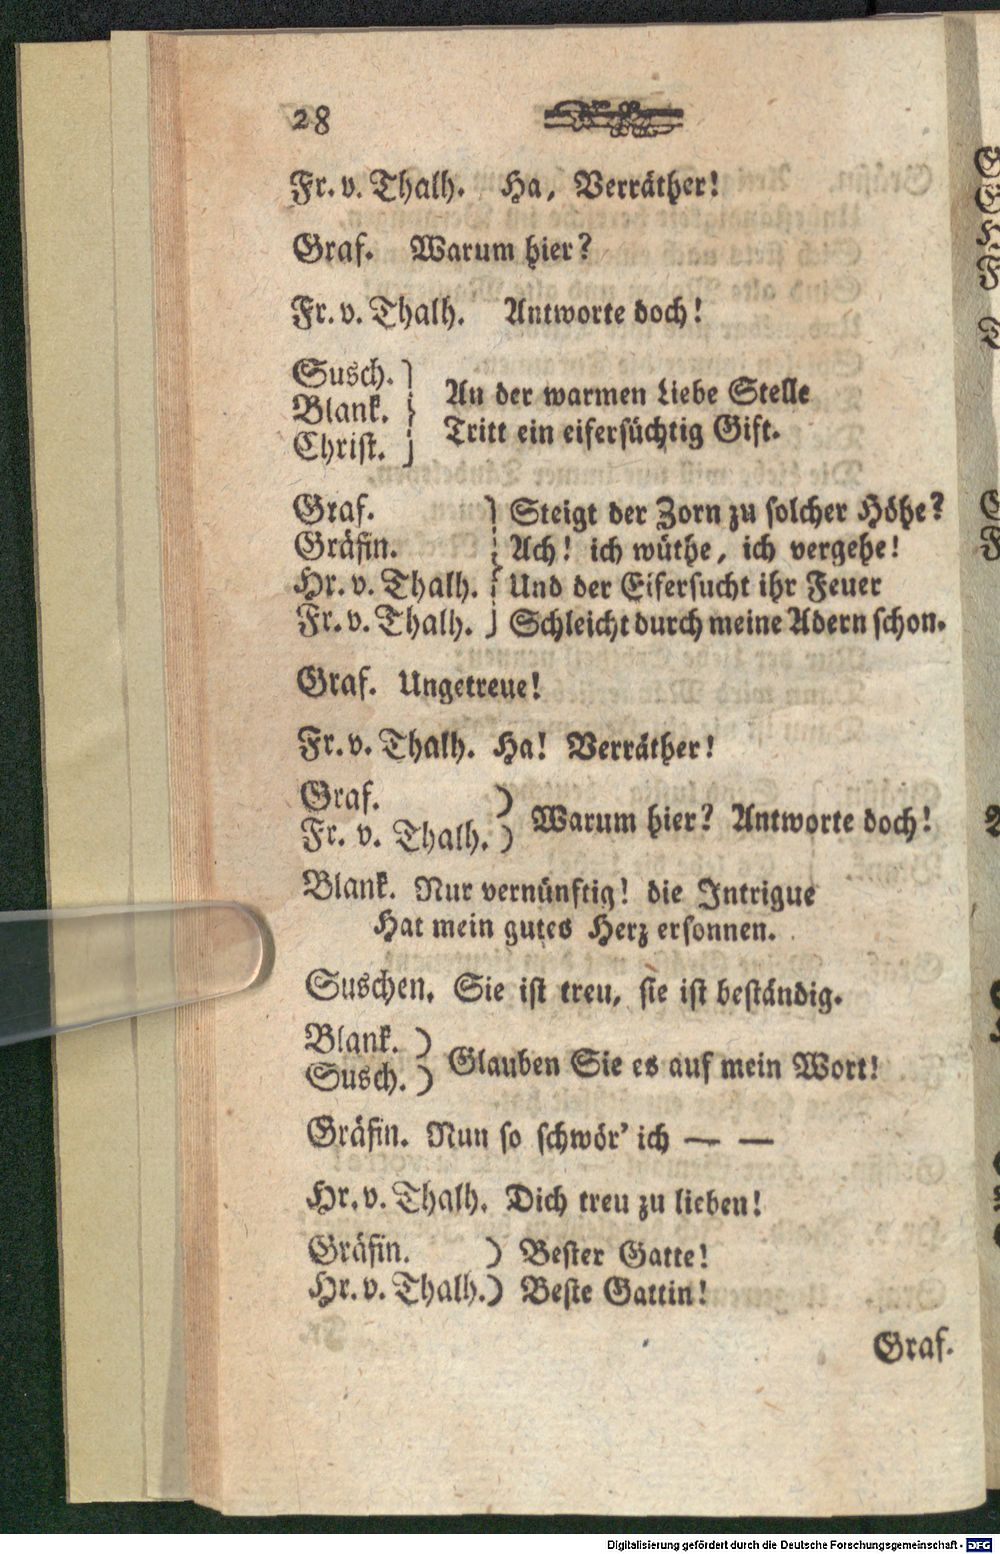 28
Fr. v. Thalh. Ha, Verräther!
Graf. Warum hier?
Fr. v. Thalh. Antworte doch!
Susch.
Blank.
Christ.
An der warmen Liebe Stelle
Tritt ein eifersüchtig Gift.
Graf. Steigt der Zorn zu solcher Höhe?
Gräfin. Ach! ich wüthe, ich vergehe!
Hr. v. Thalh. Und der Eifersucht ihr Feuer
Fr. v. Thalh. Schleicht durch meine Adern schon.
Graf. Ungetreue!
Fr. v. Thalh. Ha! Verräther!
Graf.
Fr. v. Thalh.
Warum hier? Antworte doch!
Blank. Nur vernünftig! die Intrigue
Hat mein gutes Herz ersonnen.
Suschen. Sie ist treu, sie ist beständig.
Blank.
Susch.
Glauben Sie es auf mein Wort!
Gräfin. Nun so schwör' ich — —
Hr. v. Thalh. Dich treu zu lieben!
Gräfin. ) Bester Gatte!
Hr. v. Thalh. ) Beste Gattin!
Graf.
Digitalisierung gefördert durch die Deutsche Forschungsgemeinschaft - DFG